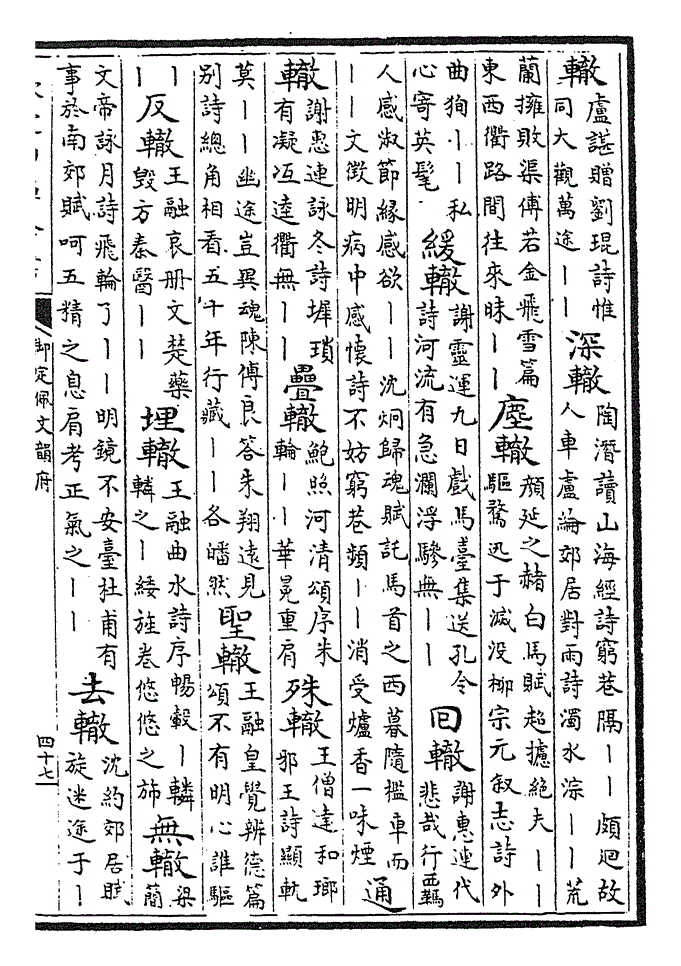 轍盧諶贈劉琨詩惟同大觀萬途丨丨深轍陶潛讀山海經詩窮巷隔丨丨頗迴故人車盧綸郊居對雨詩濁水淙丨丨荒
蘭擁敗渠傅若金飛雪篇東西衢路間往來昧丨丨塵轍顔延之赭白馬賦超攄絶夫丨丨驅騖迅于滅没柳宗元叙志詩外
曲狥丨丨私心寄英髦緩轍謝靈運九日戲馬臺集送孔令詩河流有急瀾浮驂無丨丨回轍謝惠連代悲哉行羈
人感淑節緣感欲丨丨沈炯歸魂賦託馬首之西暮隨檻車而丨丨文徵明病中感懷詩不妨窮巷頻丨丨消受爐香一味煙通
轍謝惠連詠冬詩墀瑣有凝冱逵衢無丨丨疊轍鮑照河清頌序朱輪丨丨華冕重肩殊轍王僧達和瑯邪王詩顯軌
莫丨丨幽途豈異魂陳傅良答朱翔遠見別詩總角相看五十年行藏丨丨各皤然聖轍王融皇覺辨德篇頌不有明心誰驅
丨丨反轍王融哀册文楚藥毀方秦醫丨丨埋轍王融曲水詩序暢轂丨轔轔之丨緌旌卷悠悠之斾無轍梁簡
文帝詠月詩飛輪了丨丨明鏡不安臺杜甫有事於南郊賦呵五精之息肩考正氣之丨丨去轍沈約郊居賦旋迷途于丨
御定佩文韻府
四十七